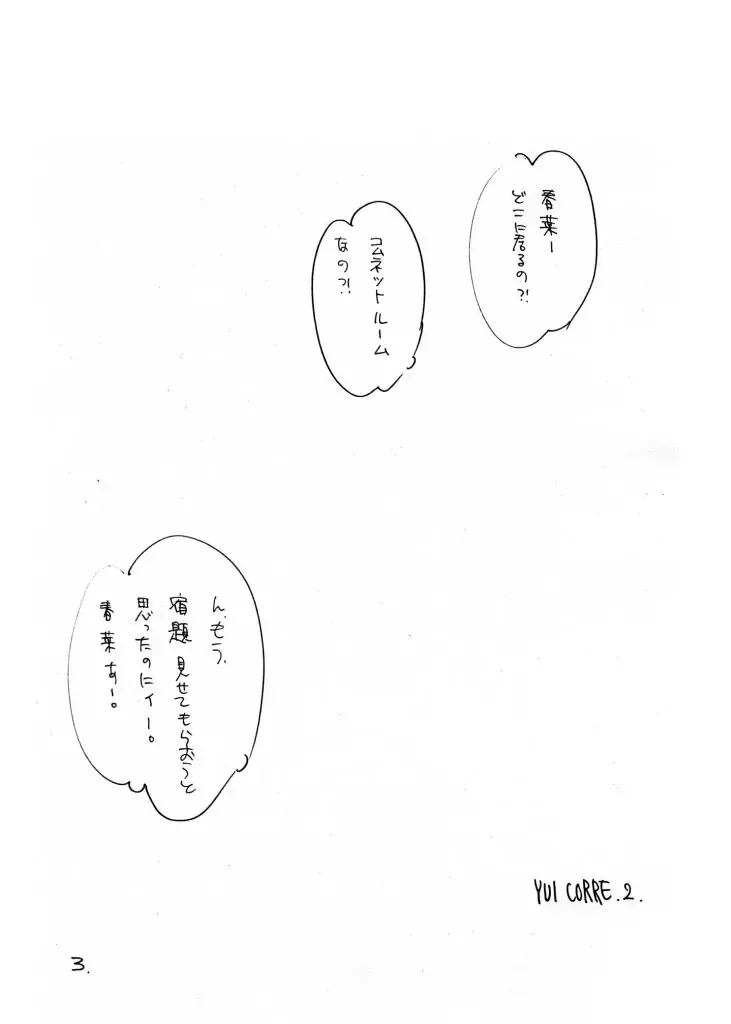 春葉ー
どこに居るの?!
コムネットルーム
なの?!
ん、もう、
宿題見せてもらおうと
思ったのにィー。
春葉あー。
YUI CORRE.2.
3.